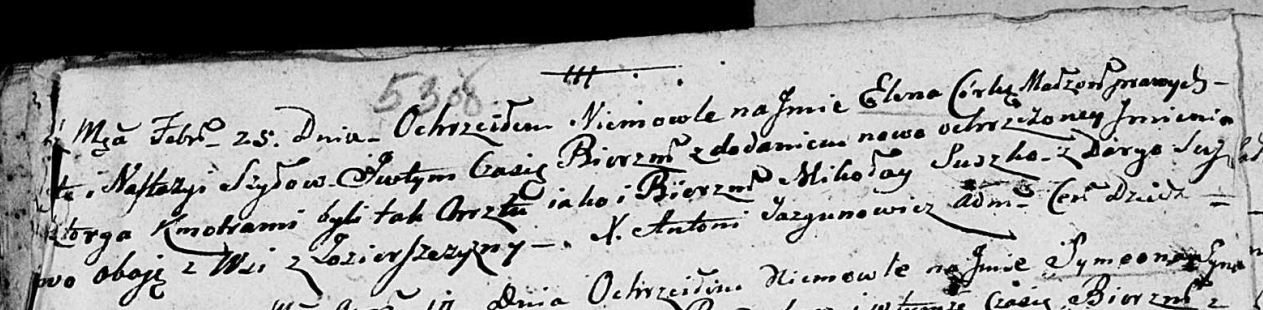 5308
Mca Febr 25. Dnia Ochrzciłem Niemowle na Jmie Elena Córkę Małżon prawych
i Nastazyi Szyłow. Jwtym Czasię Bierzm z dodaniem nowo ochrzczoney Jmienia
Kmotrami byli tak Chrztu iako i Bierzm Mikołay Suszko z Darya
wo oboię z Wsi z Łozierszczyzny. X. Antoni Jazgunowicz Adm Cer Dziedz
Dnia Ochrzciłem Niemowle na Jmie Symeona Syna
i wtymże Czasię Bierzm z